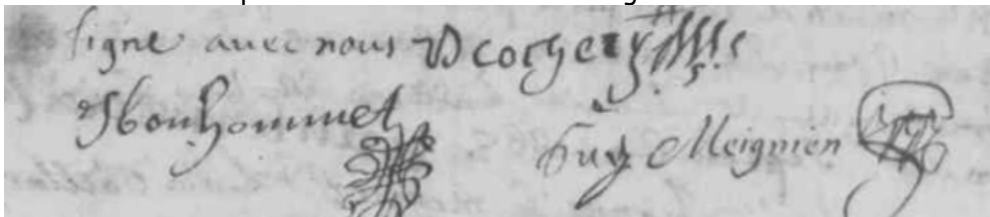 signe avec nous Dcochery
Jbonhommet
Guy Meignien